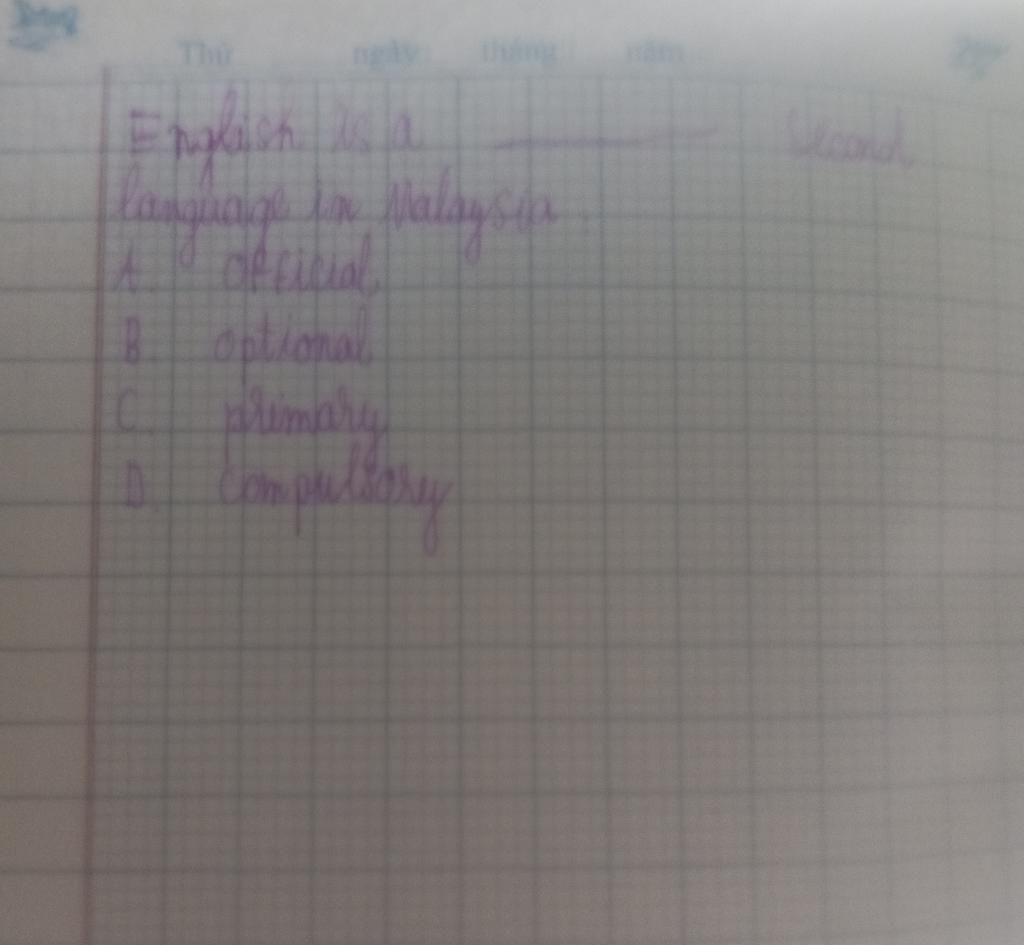 Thứ ngày tháng năm
English is a ________ second
language in Malaysia
A. official
B. optional
C. primary
D. compulsory